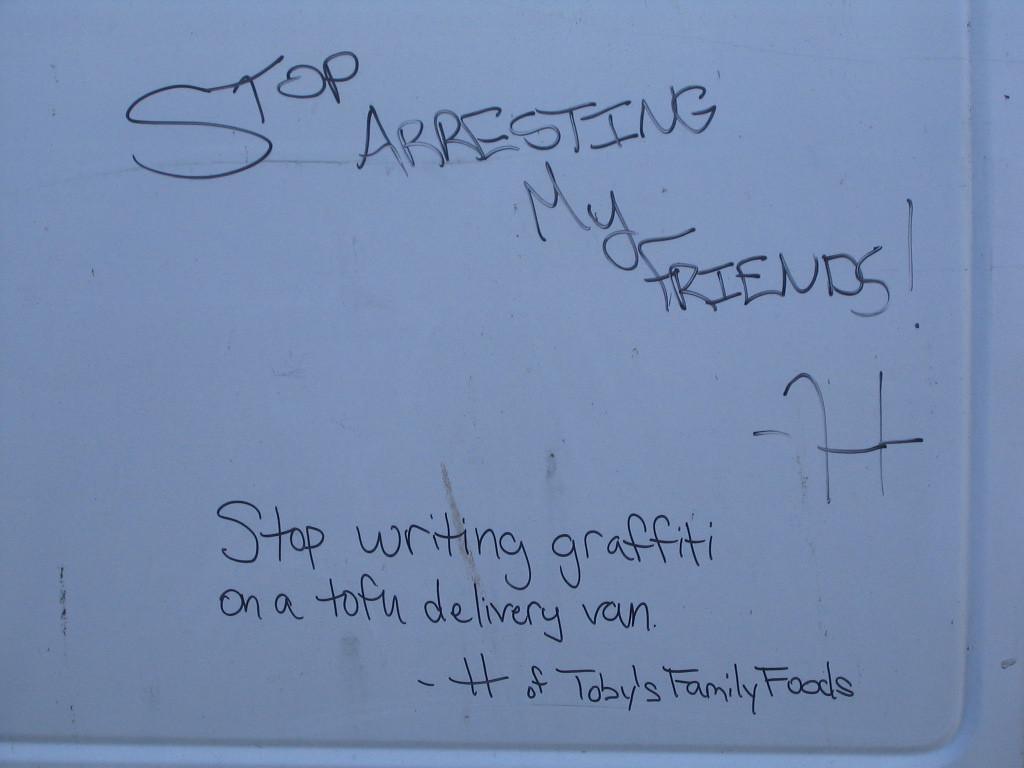 STOP
ARRESTING
My
FRIENDS!
-H
Stop writing graffiti
on a tofu delivery van.
- H of Toby's Family Foods